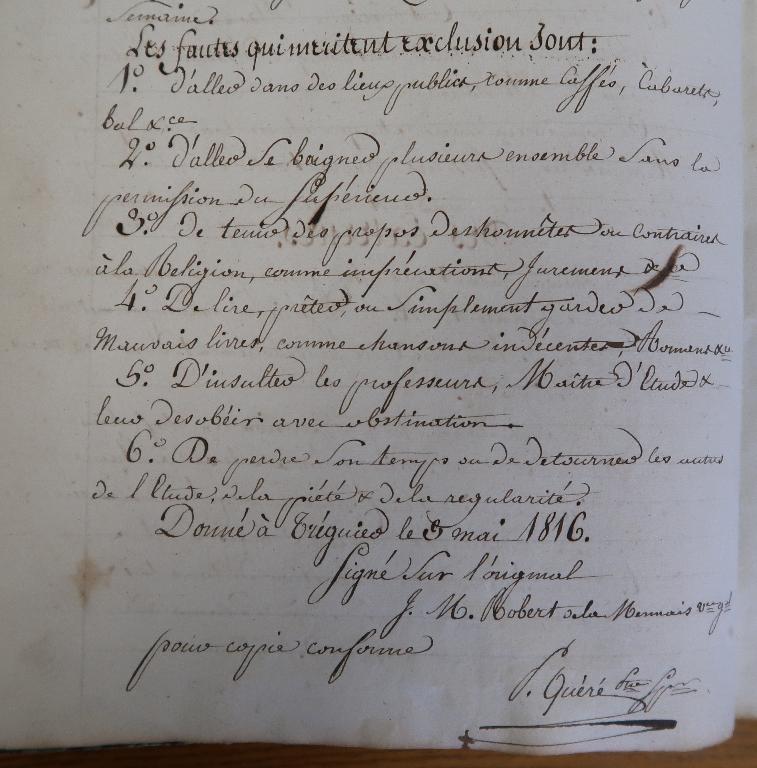 Semaine.
Les fautes qui méritent exclusion Sont:
1.° d'aller dans des lieux publics, comme Caffés, Cabarets,
bal &.ce
2.° d'aller se baigner plusieurs ensemble Sans la
permission du Supérieur.
3.° de tenir des propos deshonnêtes ou contraires
à la Religion, comme imprécations, Juremens &ca
4.° De lire, prêter, ou Simplement garder de
Mauvais livres, comme chansons indécentes, Romans &ca
5.° D'insulter les professeurs, Maître d'Etude &
leur desobéir avec obstination.
6.° De perdre Son temps ou de detourner les autres
de l'Etude, de la piété & de la regularité.
Donné à Tréguier le 5 mai 1816.
Signé Sur l'original
J. M. Robert de la Mennais vre gl
pour copie conforme
Quéré